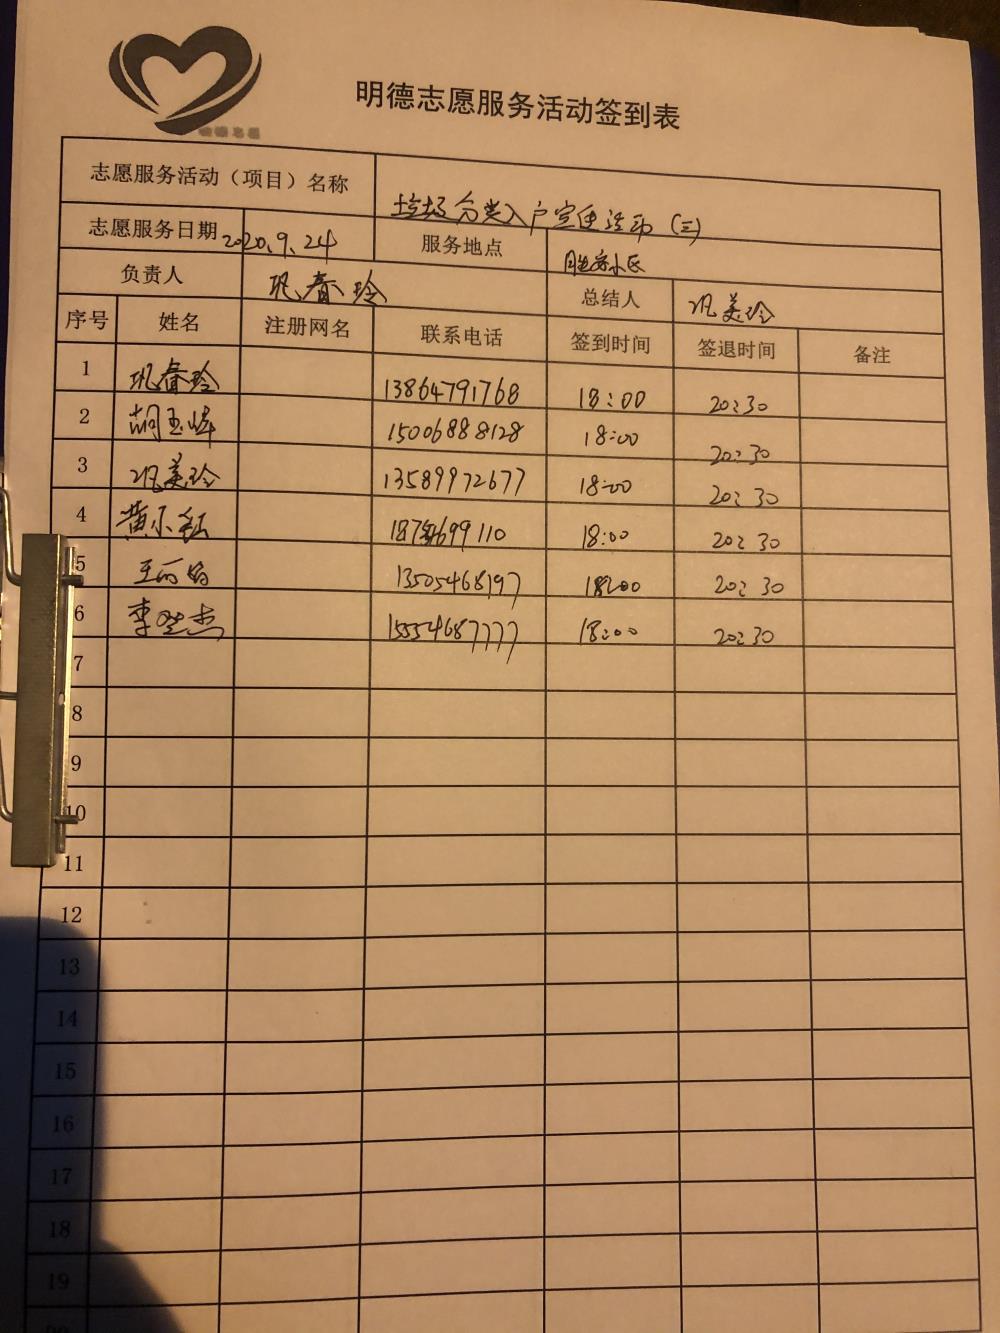 明德志愿服务活动签到表
志愿服务活动（项目）名称 垃圾分类入户宣传活动（三）
志愿服务日期 2020.9.24 服务地点 小区
负责人 巩春玲 总结人 巩美玲
序号 姓名 注册网名 联系电话 签到时间 签退时间 备注
1 巩春玲 13864791768 18:00 20:30
2 胡玉 15006888128 18:00 20:30
3 巩美玲 13589972677 18:00 20:30
4 黄小 18:00 20:30
5 王丽 13505468197 18:00 20:30
6 李 杰 15554687777 18:00 20:30
7
8
9
10
11
12
13
14
15
16
17
18
19